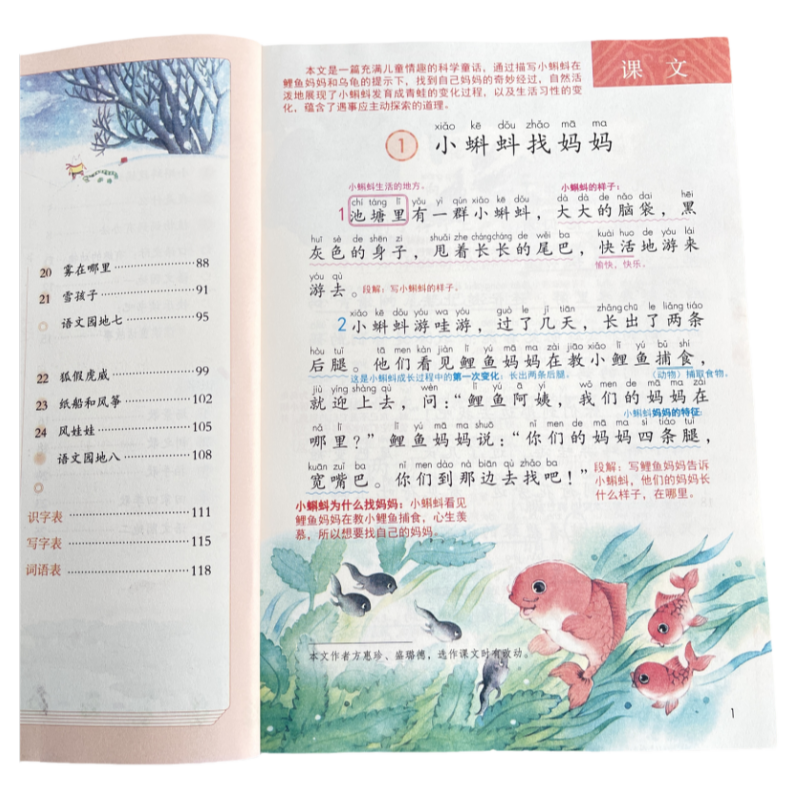 20 雾在哪里 88
21 雪孩子 91
语文园地七 95
22 狐假虎威 99
23 纸船和风筝 102
24 风娃娃 105
语文园地八 108
识字表 111
写字表 115
词语表 118
课 文
本文是一篇充满儿童情趣的科学童话，通过描写小蝌蚪在
鲤鱼妈妈和乌龟的提示下，找到自己妈妈的奇妙经过，自然活
泼地展现了小蝌蚪发育成青蛙的变化过程，以及生活习性的变
化，蕴含了遇事应主动探索的道理。
xiǎo kē dǒu zhǎo mā ma
1 小蝌蚪找妈妈
小蝌蚪生活的地方。 小蝌蚪的样子：
chí táng lǐ yǒu yì qún xiǎo kē dǒu dà dà de nǎo dai hēi
1 池塘里有一群小蝌蚪，大大的脑袋，黑
huī sè de shēn zi shuǎi zhe cháng cháng de wěi ba kuài huo de yóu lái
灰色的身子，甩着长长的尾巴，快活地游来
愉快、快乐。
yóu qù
游去。 段解：写小蝌蚪的样子。
xiǎo kē dǒu yóu wa yóu guò le jǐ tiān zhǎng chū le liǎng tiáo
2 小蝌蚪游哇游，过了几天，长出了两条
hòu tuǐ tā men kàn jiàn lǐ yú mā ma zài jiāo xiǎo lǐ yú bǔ shí
后腿。他们看见鲤鱼妈妈在教小鲤鱼捕食，
这是小蝌蚪成长过程中的第一次变化：长出两条后腿。 （动物）捕取食物。
jiù yíng shàng qù wèn lǐ yú ā yí wǒ men de mā ma zài
就迎上去，问：“鲤鱼阿姨，我们的妈妈在
小蝌蚪妈妈的特征：
nǎ lǐ lǐ yú mā ma shuō nǐ men de mā ma sì tiáo tuǐ
哪里？”鲤鱼妈妈说：“你们的妈妈四条腿，
kuān zuǐ ba nǐ men dào nà biān qù zhǎo ba
宽嘴巴。你们到那边去找吧！”
段解：写鲤鱼妈妈告诉
小蝌蚪，他们的妈妈长
什么样子，在哪里。
小蝌蚪为什么找妈妈：小蝌蚪看见
鲤鱼妈妈在教小鲤鱼捕食，心生羡
慕，所以想要找自己的妈妈。
本文作者方惠珍、盛璐德，选作课文时有改动。
1